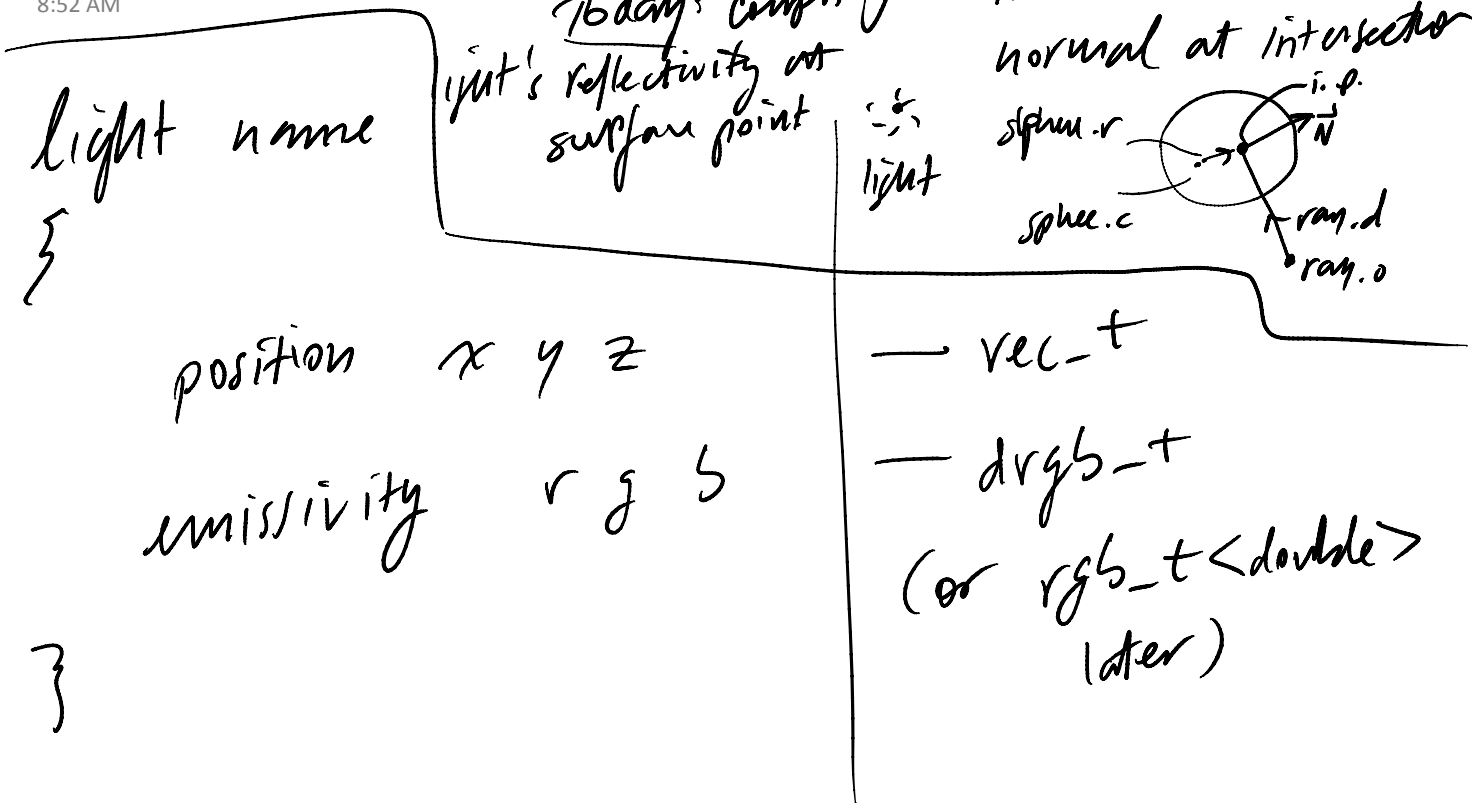 8:52 AM
Today:
light's reflectivity at
surface point
light
normal at intersection
i.p.
N
sphere.r
sphere.c
ray.d
ray.o
light name
{
position x y z — vec_t
emissivity r g b — drgb_t
(or rgb_t<double>
later)
}